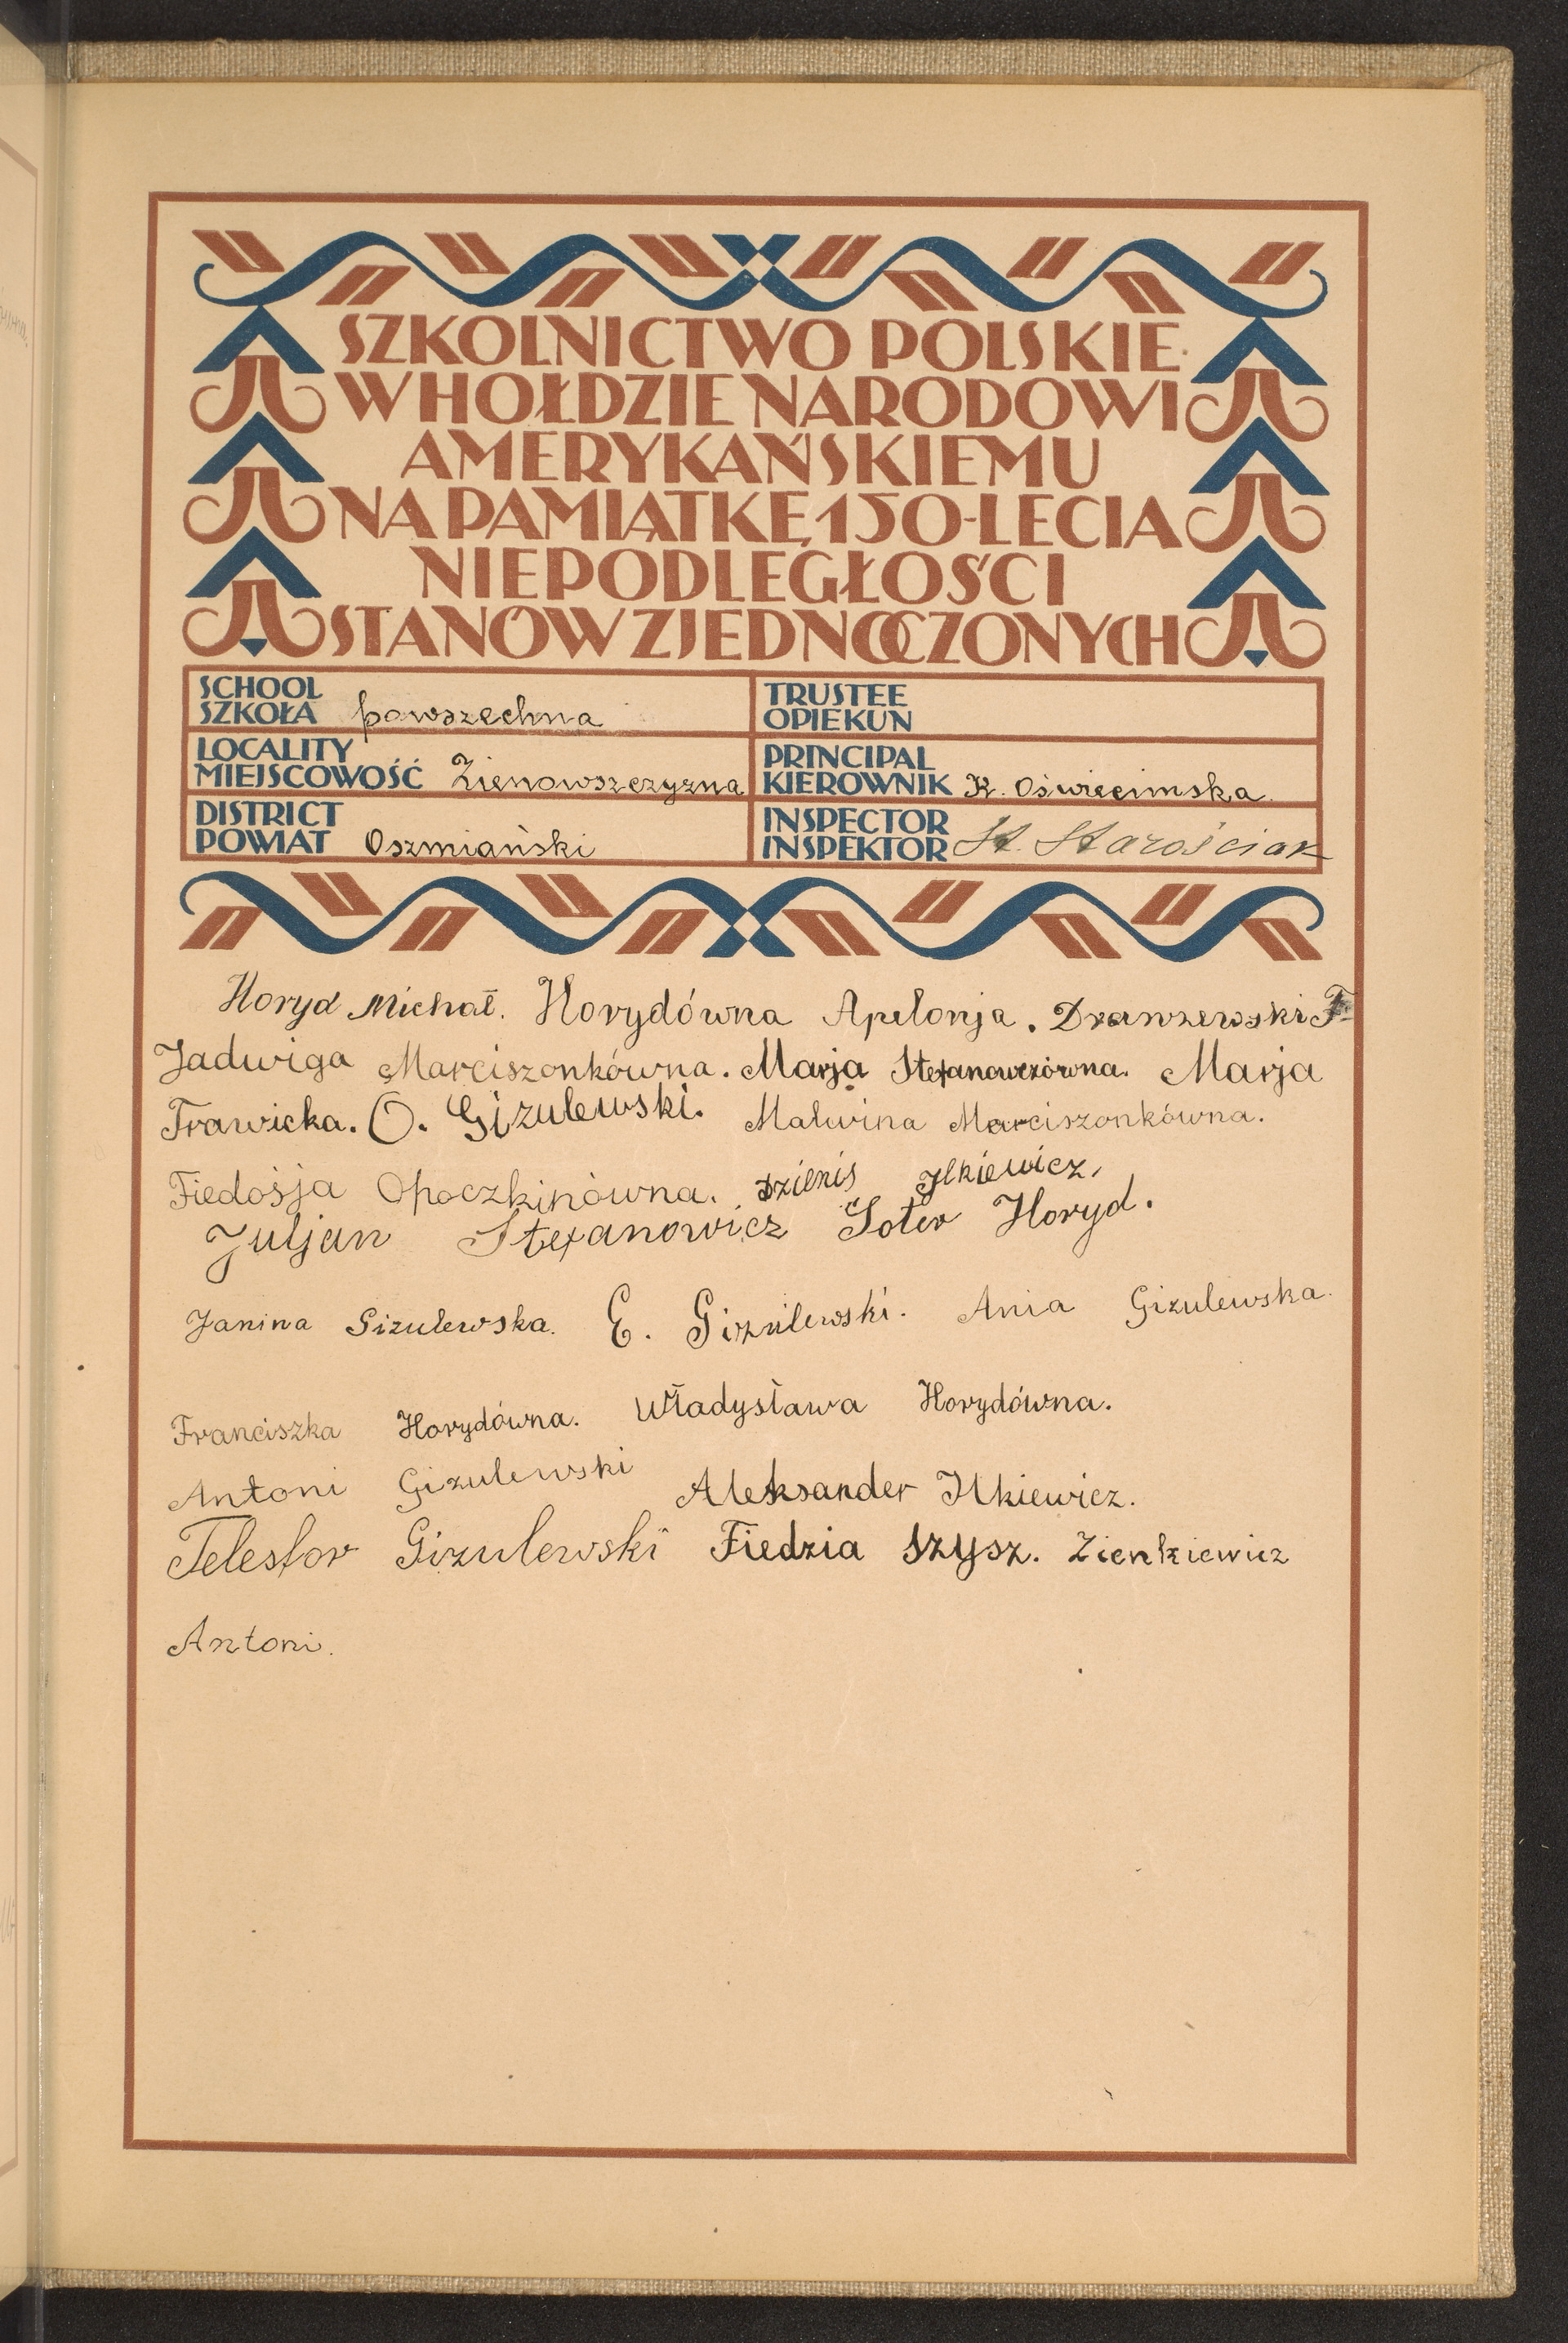 SZKOLNICTWO POLSKIE
W HOŁDZIE NARODOWI
AMERYKAŃSKIEMU
NA PAMIĄTKĘ 150-LECIA
NIEPODLEGŁOŚCI
STANÓW ZJEDNOCZONYCH
SCHOOL
SZKOŁA powszechna
TRUSTEE
OPIEKUN
LOCALITY
MIEJSCOWOŚĆ Zienowszczyzna
PRINCIPAL
KIEROWNIK K. Oświecimska.
DISTRICT
POWIAT Oszmiański
INSPECTOR
INSPEKTOR St. Starościak
Horyd Michał. Horydówna Apelonja. F
Jadwiga Marciszonkówna. Marja Stefanowiczówna. Marja
Trawicka. O. Gizulewski. Malwina Marciszonkówna.
Fiedośja Opoczkinówna. Dzienis Ilkiewicz.
Juljan Stefanowicz Soter Horyd.
Janina Gizulewska. E. Gizulewski. Ania Gizulewska.
Franciszka Horydówna. Władysława Horydówna.
Antoni Gizulewski Aleksander Ilkiewicz.
Telesfor Gizulewski Fiedzia Szysz. Zienkiewicz
Antoni.